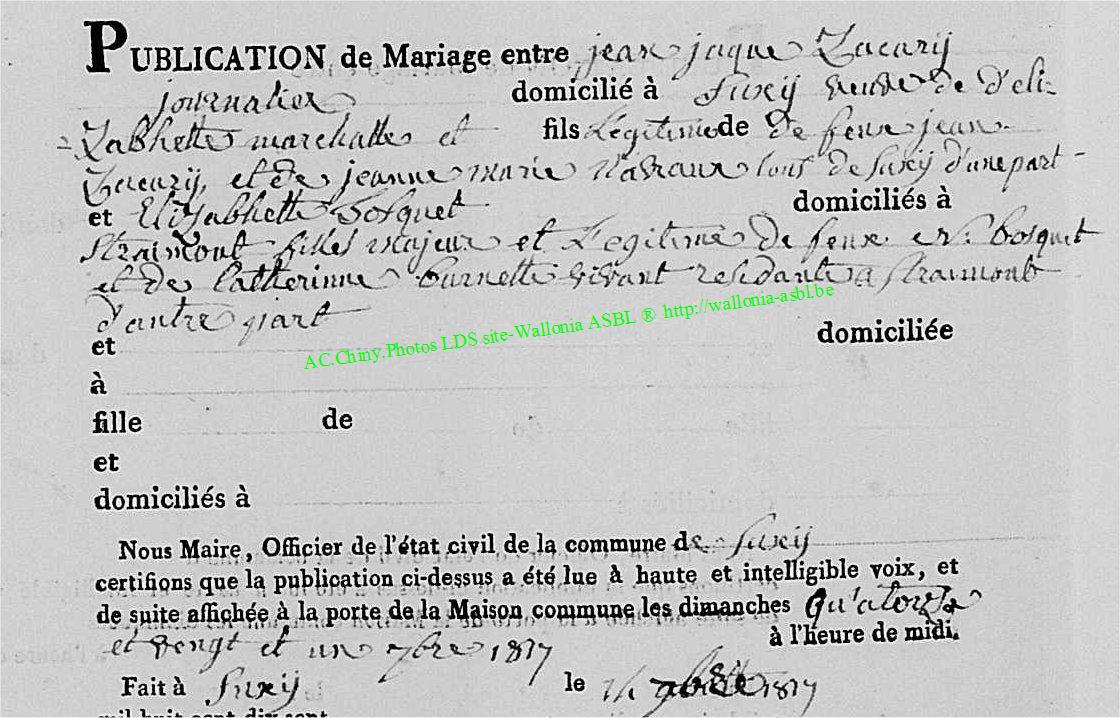 PUBLICATION de Mariage entre jean jaque Zacarij
journalier domicilié à Suxij veuve de d'eli-
zabhette marchatte et fils Légitime de de feux jean
Zacarij, et de jeanne marie tous de Suxij d'une part
et Elizabhette Bosquet domiciliés à
Straimont filles Majeur et Legitime de feux Bosquet
et de Catherinne burnette vivant residante a straimont
d'autre part
et domiciliée
à
fille de
et
domiciliés à
AC.Chiny.Photos LDS site-Wallonia ASBL ® http://wallonia-asbl.be
Nous Maire, Officier de l'état civil de la commune de Suxij
certifions que la publication ci-dessus a été lue à haute et intelligible voix, et
de suite affichée à la porte de la Maison commune les dimanches qu'atorze
et vengt et un 7bre 1817 à l'heure de midi.
Fait à Suxij le 14 1817
mil huit cent dix sept